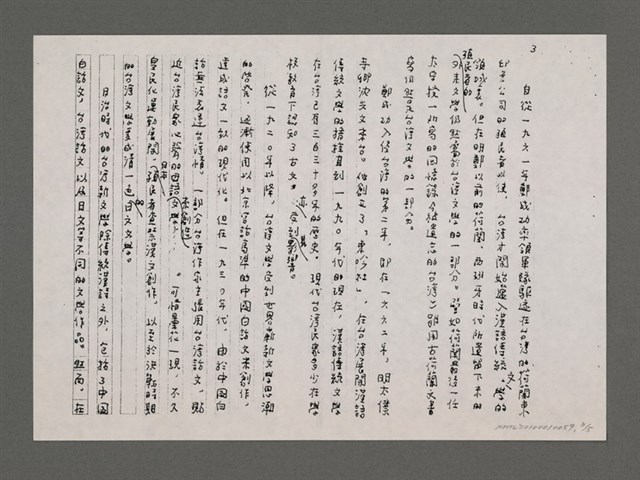 3
自從一九六一年鄭成功率領軍隊驅逐在台灣的荷蘭東
印度公司的殖民者以後,台灣才開始進入漢語傳統文學的
領域裏。但在明鄭以前的荷蘭、西班牙時代所遺留下來的
殖民者的外來文學仍然屬於台灣文學的一部分。譬如荷蘭最後一任
大守揆一所寫的回憶錄《被遺忘的台灣》雖用古荷蘭文書
寫但仍是台灣文學的一部分。
鄭成功入侵台灣的第二年,即在一六六二年,明太僕
寺卿沈光文來台。他創立了「東吟社」,在台灣展開漢語
傳統文學的播種直到一九九〇年代的現在,漢語傳統文學
在台灣已有三百三十多年的歷史。現代台灣民衆多少在學
校教育下認知了古文,亦受到影響。
從一九二〇年以降,台灣文學受到世界新文學思潮
的啓發,逐漸使用以北京官話爲準的中國白話文來創作,
達成語文一致的現代化。但在一九三〇年代,由於中國白
話無法表達台灣情,一部分台灣作家主張用台灣話文,貼
近台灣民衆心聲的母語文學來創造。可惜曇花一現,不久
皇民化運動展開,日本殖民者查禁漢文創作。以至於決戰時期
的台灣文學變成清一色的日文文學。
日治時代的台灣新文學除傳統漢詩之外,包括了中國
白話文,台灣話文以及日文等不同的文學作品。然而,在